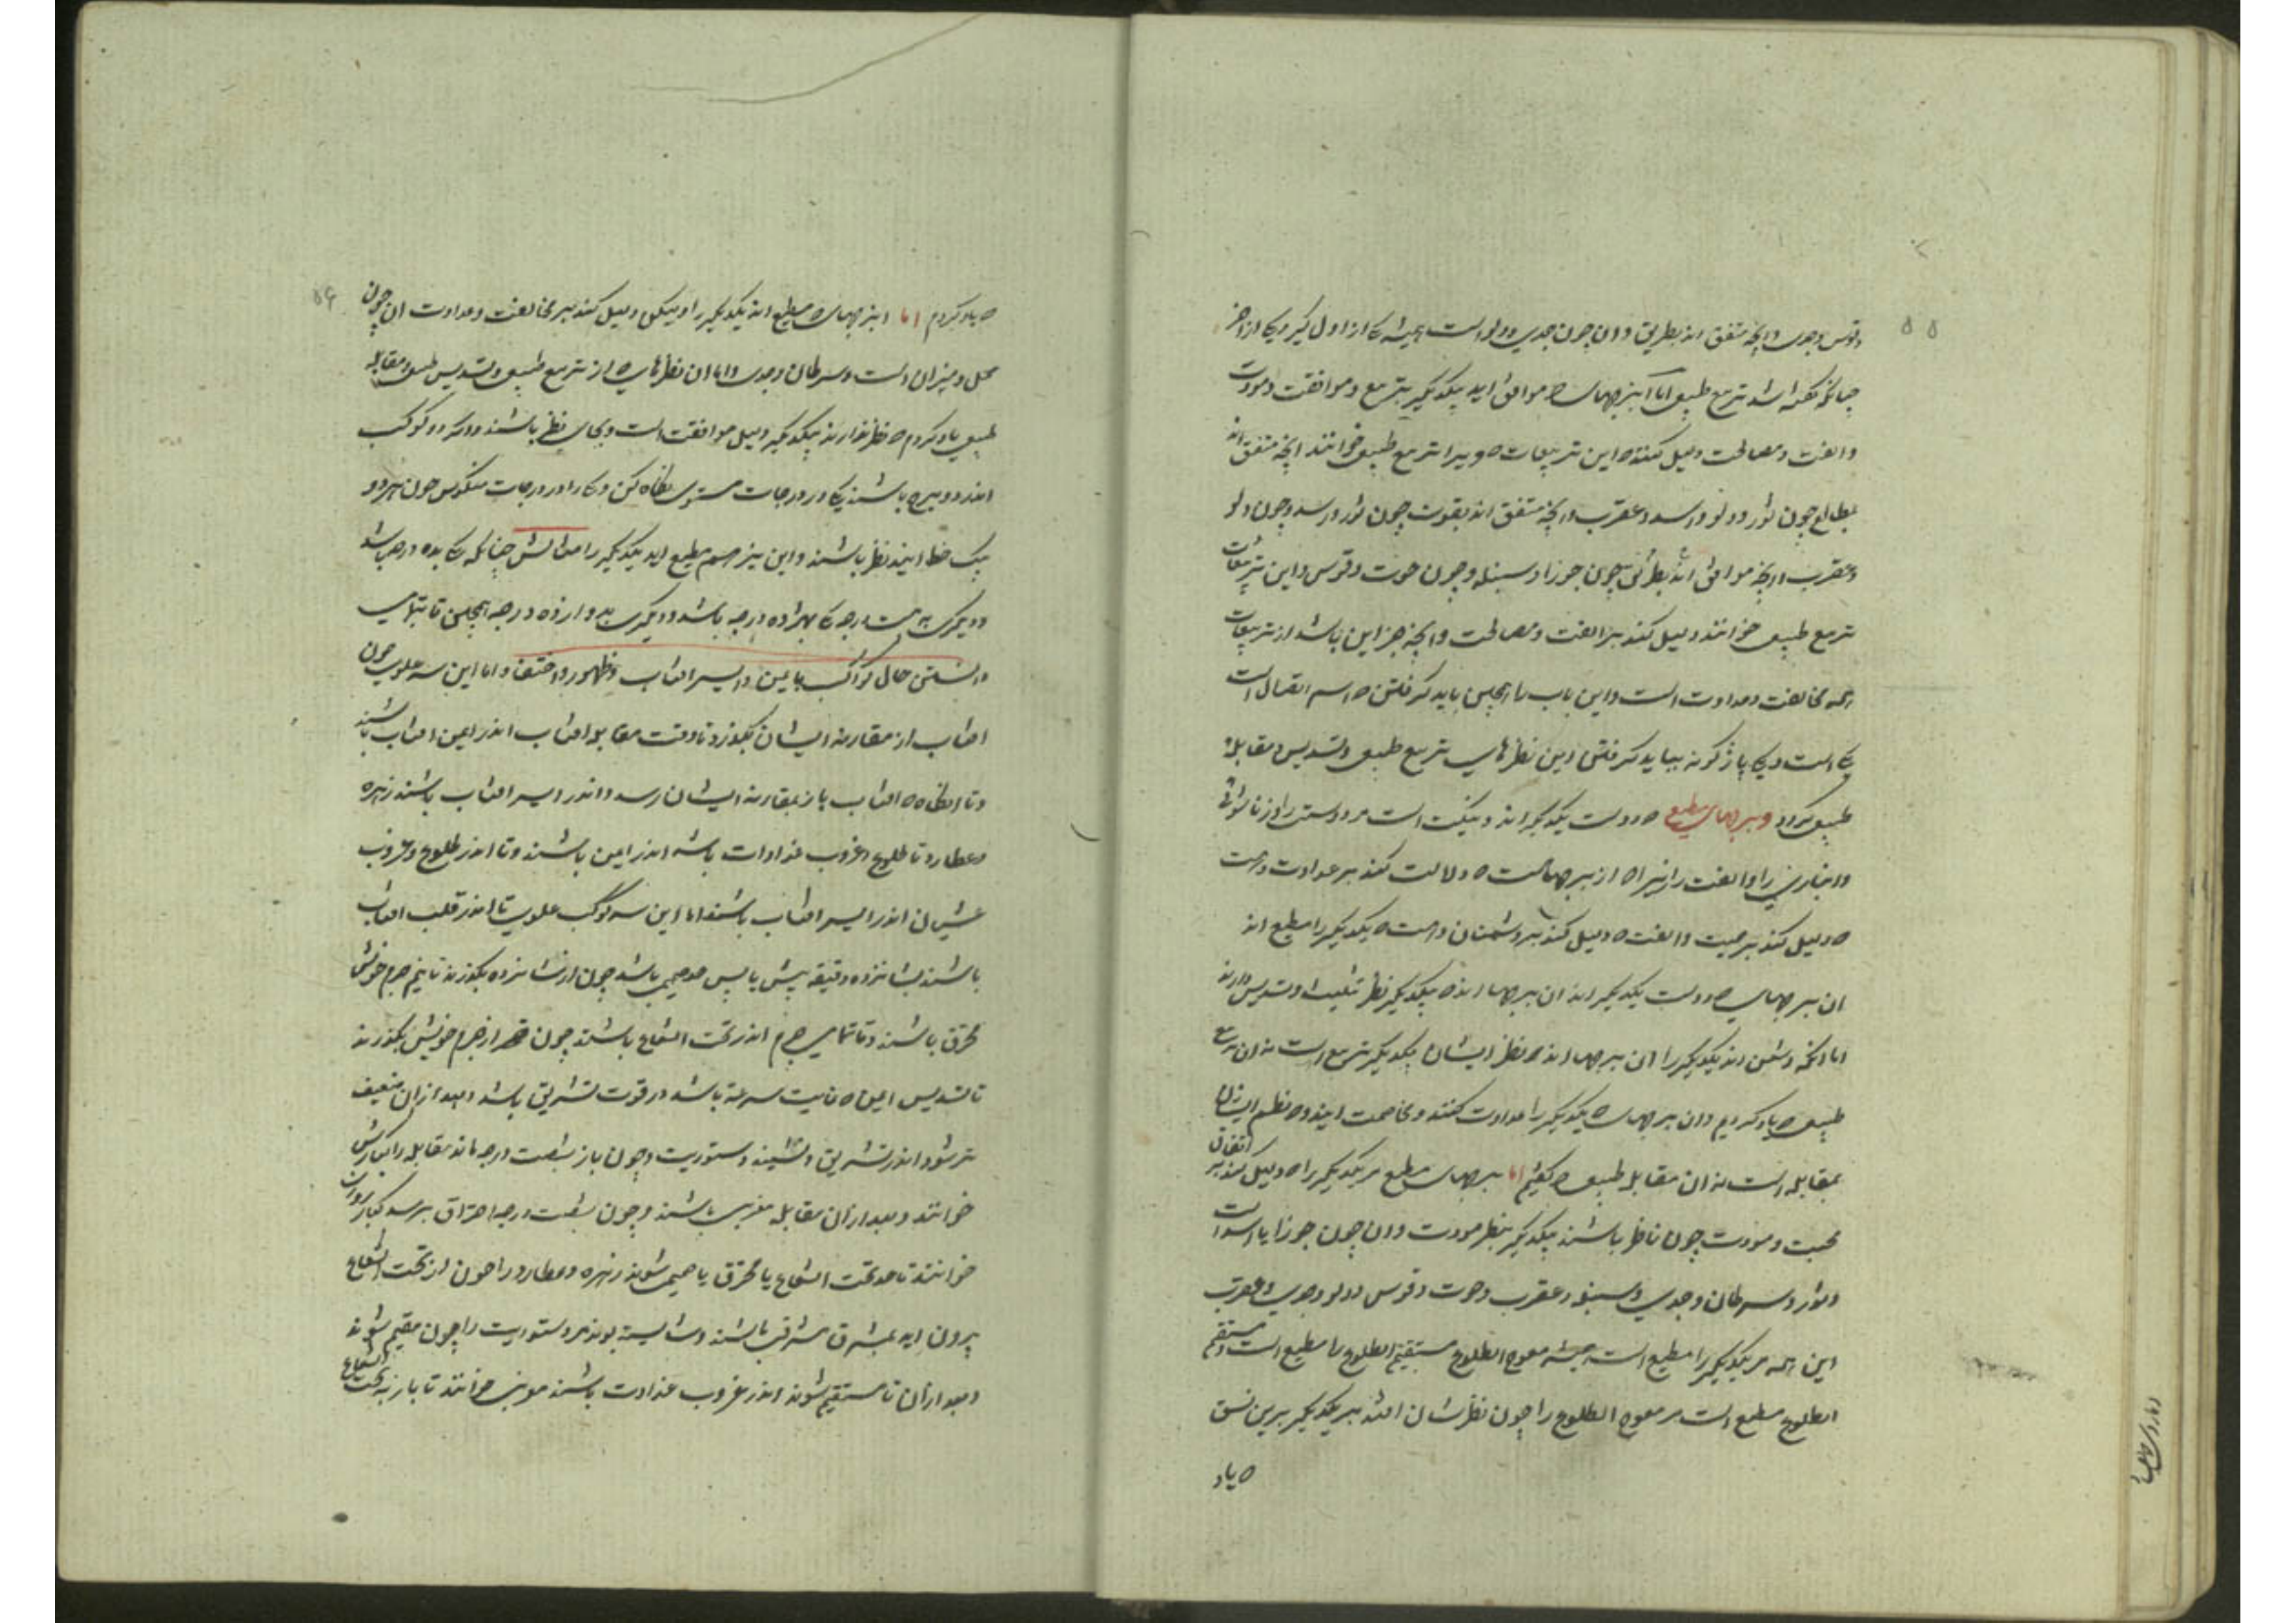 وقوس وجدی وانچه متفق اند بطریق وان چون جدی ودلو است همیشه یکی از اول گیر ویکی از اخر
چنانکه گفته اند تربیع طبیعی اما این برجهای که موافق اند یکدیگر بتربیع وموافقت ومودت
والفت ومصالحت دلیل کنند که این تربیعات که ویرا تربیع طبیعی خوانند انچه متفق اند
بمطالع چون ثور ودلو واسد وعقرب وانچه متفق اند بقوت چون ثور واسد وچون دلو
وعقرب وانچه موافق اند بطریقی چون جوزا وسنبله وچون حوت وقوس واین تربیعات
تربیع طبیعی خوانند دلیل کنند بر الفت ومصالحت وانچه جز این باشد از تربیعات
همه مخالفت وعداوت است واین باب را همچنین باید گرفتن که اسم اتصال است
یکی است ویکی باژگونه بباید گرفتن این نظرهای تربیع طبیعی وتسدیس ومقابله
طبیعی کراد وبرجهای مطیع که دوست یکدیگر اند ونیک است مر دوستی را وزناشوئی
وانبازی را والفت را زیرا که از برجها هست که دلالت کند بر عداوت وهست
که دلیل کند بر محبت والفت که دلیل کند بر دشمنان وهست که یکدیگر را مطیع اند
ان برجهای که دوست یکدیگر اند ان برجها اند که بیکدیگر نظر تثلیث وتسدیس دارند
اما انکه دشمن اند یکدیگر را ان برجها اند که نظر ایشان بیکدیگر تربیع است نه ان تربیع
طبیعی که یاد کردیم وان برجهای که یکدیگر را عداوت کنند ومخاصمت ایند که نظر ایشان
بمقابله است نه ان مقابله طبیعی که گفتیم اما برجهای مطیع مر یکدیگر را که دلیل کند بر اتفاق
محبت ومودت چون ناظر باشند بیکدیگر بنظر مودت وان چون جوزا با اسد است
وثور وسرطان وجدی وسنبله وعقرب وحوت وقوس ودلو وجدی وعقرب
این همه مر یکدیگر را مطیع است همیشه معوج الطلوع مستقیم الطلوع را مطیع است ومستقیم
الطلوع مطیع است مر معوج الطلوع را چون نظرشان افتد بر یکدیگر برین نسق
که یاد
که یاد کردم اما این برجهای که مطیع اند یکدیگر را ولیکن دلیل کنند بر مخالفت وعداوت ان چون
حمل ومیزان است وسرطان وجدی واما ان نظرهای که از تربیع طبیعی وتسدیس طبیعی ومقابله
طبیعی یاد کردم که نظر ندارند بیکدیگر دلیل موافقت است وبجای نظر باشند واگر دو کوکب
اندر دو برج باشند یکی در درجات مستوی نگاه کن ویکی را در درجات منکوس چون هر دو
بیک خط ایند نظر باشند واین نیز هم مطیع اند یکدیگر را مثالش چنانکه یکی بده درجه باشد
ودیگری به بیست درجه
دانستن حال کواکب بایمن وایسر افتاب وظهور واختفا واما این سه علوی چون
افتاب از مقارنه ایشان بگذرد تا وقت مقابله افتاب اندر ایمن افتاب باشند
وتا انگاه که افتاب باز بمقارنه ایشان رسد واندر ایسر افتاب باشند زهره
وعطارد تا طلوع وغروب غداوات باشد اندر ایمن باشند وتا اندر طلوع وغروب
عشیان اندر ایسر افتاب باشند اما این سه کوکب علوی تا اندر قلب افتاب
باشند بشانزده دقیقه پیش یا پس صمیمی باشد چون از شانزده بگذرند تا نیم جرم خویش
محترق باشند وتا تمامی جرم اندر تحت الشعاع باشند چون از جرم خویش بگذرند
تا تسدیس ایمن که باشد در قوت تشریق باشد وبعد از ان ضعیف
تر شود اندر تشریق ودستوریت وچون باز بشصت درجه ماند مقابله را کنارش
خوانند وبعد از ان مقابله مغربی باشند وچون بشصت درجه احتراق برسد کنار روزان
خوانند تا حد تحت الشعاع یا محترق یا صمیمی شوند زهره وعطارد را چون از تحت الشعاع
بیرون اید بمشرق مشرقی باشند وشایسته بوند مر دستوریت را چون مقیم شوند
وبعد از ان تا مستقیم شوند اندر غروب غداوت باشند مغربی خوانند تا باز بتحت الشعاع